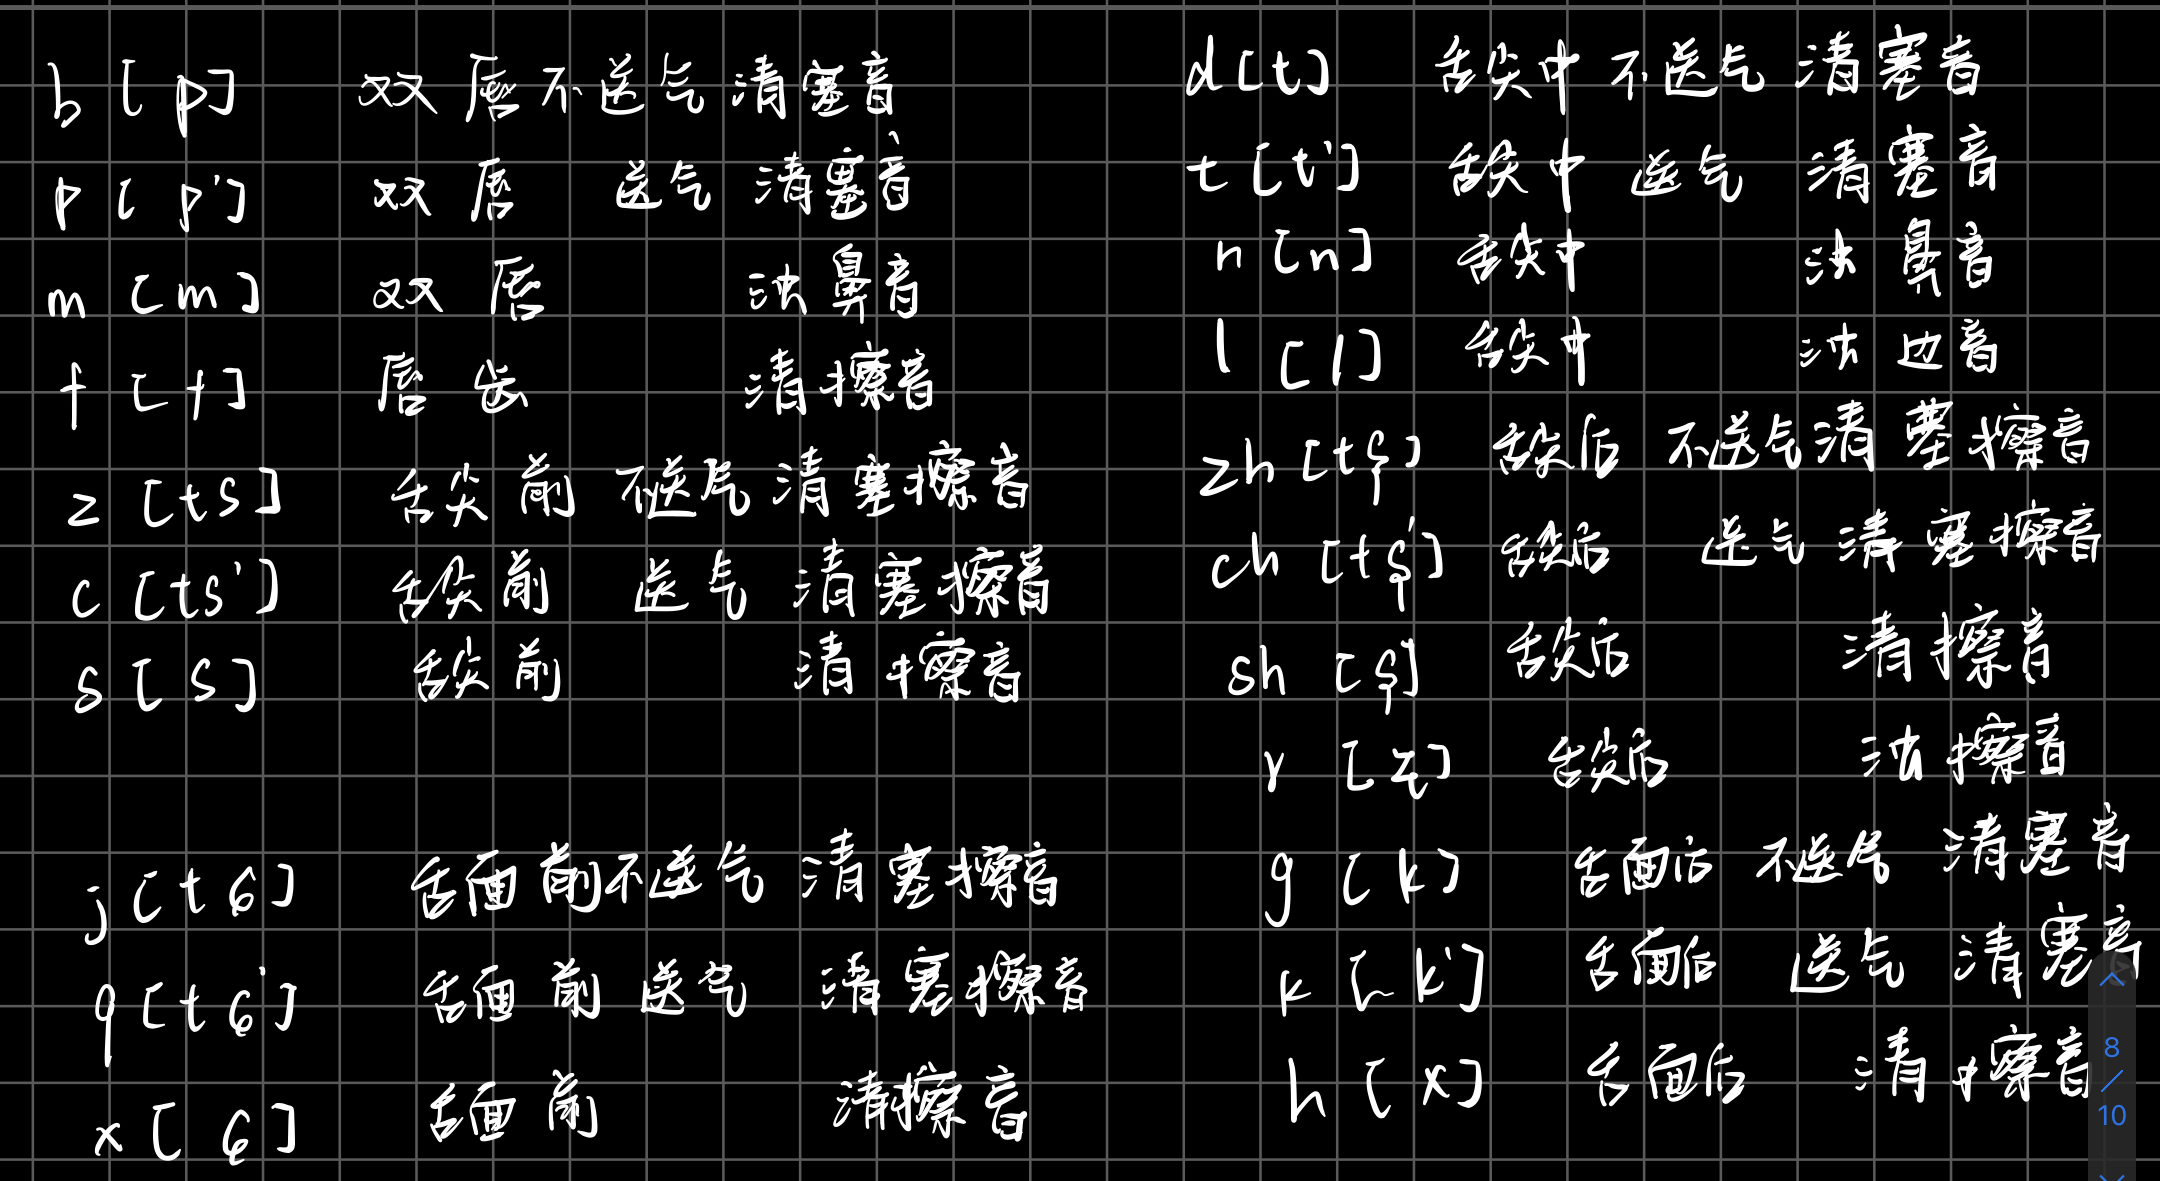 b [p] 双唇不送气清塞音
p [p'] 双唇 送气 清塞音
m [m] 双唇 浊鼻音
f [f] 唇齿 清擦音
z [ts] 舌尖前 不送气清塞擦音
c [ts'] 舌尖前 送气 清塞擦音
s [s] 舌尖前 清擦音
j [tɕ] 舌面前不送气 清塞擦音
q [tɕ'] 舌面前 送气 清塞擦音
x [ɕ] 舌面前 清擦音
d [t] 舌尖中 不送气 清塞音
t [t'] 舌尖中 送气 清塞音
n [n] 舌尖中 浊鼻音
l [l] 舌尖中 浊边音
zh [tʂ] 舌尖后 不送气清塞擦音
ch [tʂ'] 舌尖后 送气 清塞擦音
sh [ʂ] 舌尖后 清擦音
r [ʐ] 舌尖后 浊擦音
g [k] 舌面后 不送气 清塞音
k [k'] 舌面后 送气 清塞音
h [x] 舌面后 清擦音
8
/
10